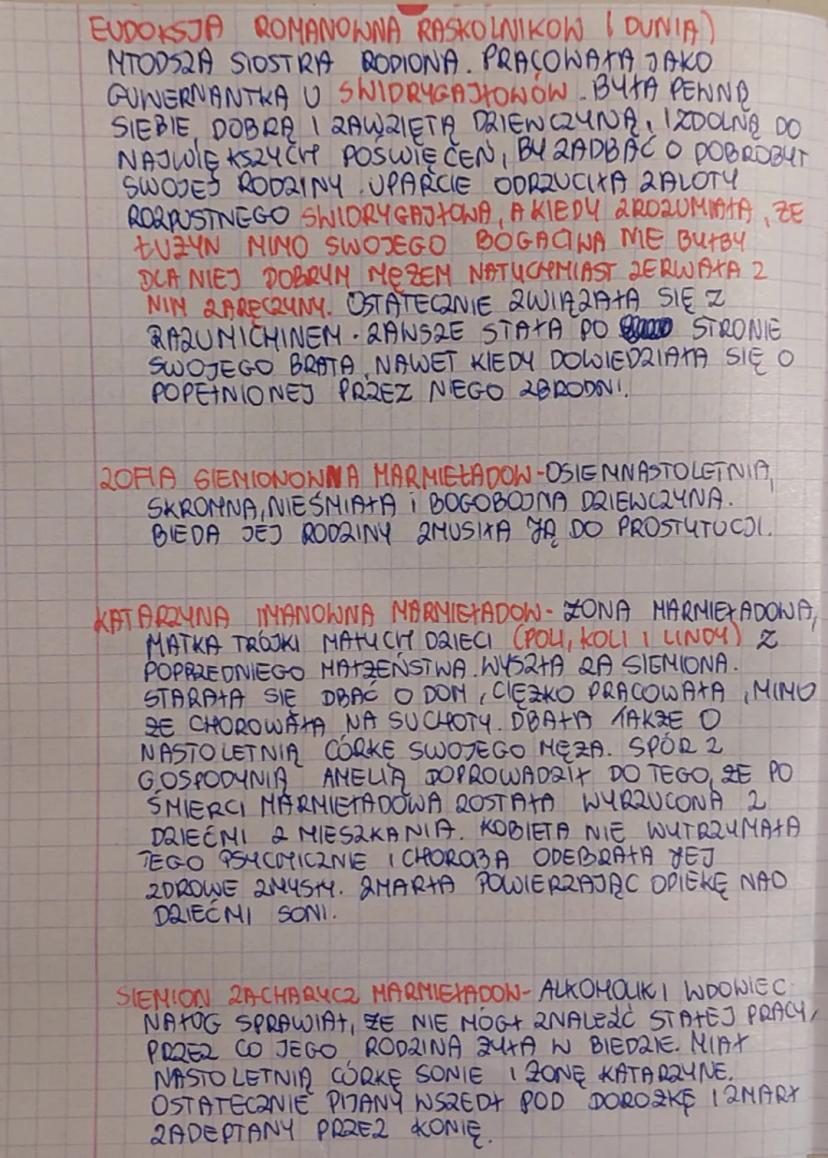 EUDOKSJA ROMANOWNA RASKOLNIKOW (DUNIA)
MŁODSZA SIOSTRA RODIONA. PRACOWAŁA JAKO
GUWERNANTKA U SWIDRYGAJŁOWÓW. BYŁA PEWNĄ
SIEBIE, DOBRĄ I ZAWZIĘTĄ DZIEWCZYNĄ, I ZDOLNĄ DO
NAJWIĘKSZYCH POŚWIĘCEŃ, BY ZADBAĆ O DOBROBYT
SWOJEJ RODZINY. UPARCIE ODRZUCIŁA ZALOTY
ROZPUSTNEGO SWIDRYGAJŁOWA, A KIEDY ZROZUMIAŁA, ŻE
ŁUŻYN MIMO SWOJEGO BOGACTWA NIE BYŁBY
DLA NIEJ DOBRYM MĘŻEM NATYCHMIAST ZERWAŁA Z
NIM ZARĘCZYNY. OSTATECZNIE ZWIĄZAŁA SIĘ Z
RAZUMICHINEM. ZAWSZE STAŁA PO STRONIE
SWOJEGO BRATA, NAWET KIEDY DOWIEDZIAŁA SIĘ O
POPEŁNIONEJ PRZEZ NIEGO ZBRODNI.
ZOFIA SIEMIONOWNA MARMIEŁADOW-OSIEMNASTOLETNIA,
SKROMNA, NIEŚMIAŁA I BOGOBOJNA DZIEWCZYNA.
BIEDA JEJ RODZINY ZMUSIŁA JĄ DO PROSTYTUCJI.
KATARZYNA IWANOWNA MARMIEŁADOW- ŻONA MARMIEŁADOWA,
MATKA TRÓJKI MAŁYCH DZIECI (POLI, KOLI I LINDY) Z
POPRZEDNIEGO MAŁŻEŃSTWA. WYSZŁA ZA SIEMIONA.
STARAŁA SIĘ DBAĆ O DOM, CIĘŻKO PRACOWAŁA, MIMO
ŻE CHOROWAŁA NA SUCHOTY. DBAŁA TAKŻE O
NASTOLETNIĄ CÓRKĘ SWOJEGO MĘŻA. SPÓR Z
GOSPODYNIĄ AMELIĄ DOPROWADZIŁ DO TEGO, ŻE PO
ŚMIERCI MARMIEŁADOWA ZOSTAŁA WYRZUCONA Z
DZIEĆMI Z MIESZKANIA. KOBIETA NIE WYTRZYMAŁA
TEGO PSYCHICZNIE I CHOROBA ODEBRAŁA JEJ
ZDROWE ZMYSŁY. ZMARŁA POWIERZAJĄC OPIEKĘ NAD
DZIEĆMI SONI.
SIEMION ZACHARYCZ MARMIEŁADOW- ALKOHOLIK I WDOWIEC
NAŁÓG SPRAWIAŁ, ŻE NIE MÓGŁ ZNALEŹĆ STAŁEJ PRACY,
PRZEZ CO JEGO RODZINA ŻYŁA W BIEDZIE. MIAŁ
NASTOLETNIĄ CÓRKĘ SONIE I ŻONĘ KATARZYNE.
OSTATECZNIE PIJANY WSZEDŁ POD DOROŻKĘ I ZMARŁ
ZADEPTANY PRZEZ KONIĘ.